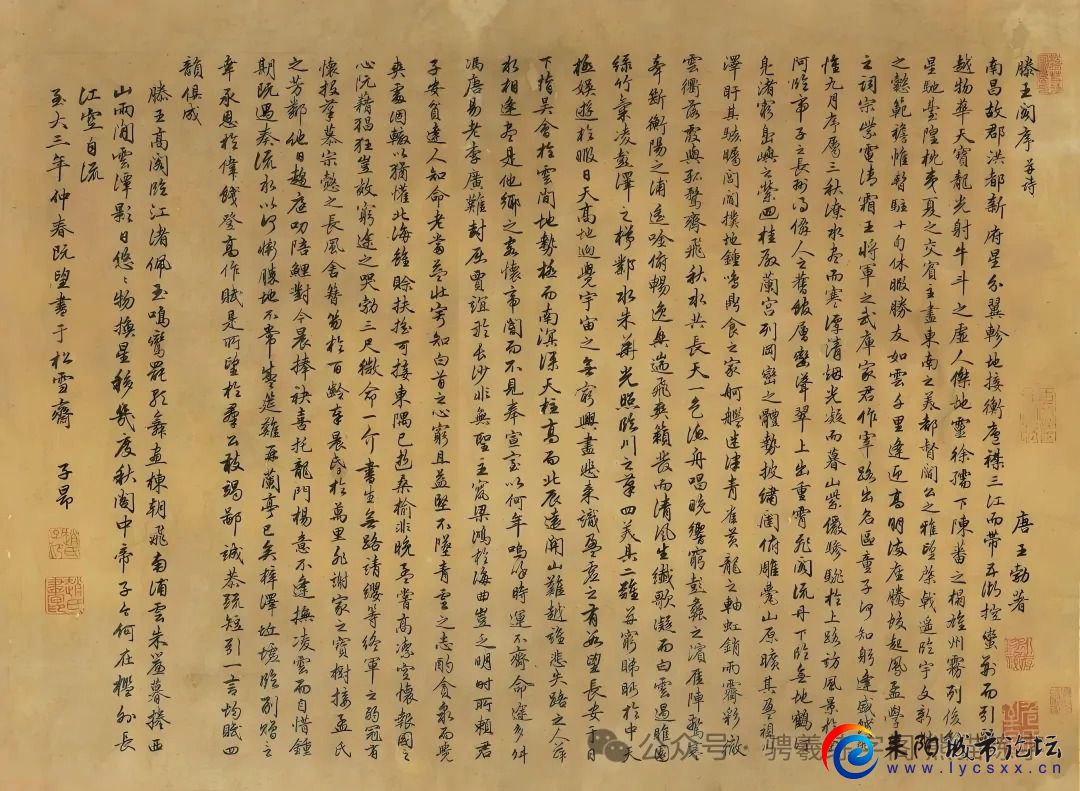 滕王阁序并诗 唐王勃著
南昌故郡洪都新府星分翼軫地接衡廬襟三江而帶五湖控蠻荊而引
越物華天寶龍光射牛斗之虛人傑地靈徐孺下陳蕃之榻雄州霧列俊
星馳臺隍枕夷夏之交賓主盡東南之美都督閻公之雅望棨戟遙臨宇文新
之懿範襜帷暫駐十旬休暇勝友如雲千里逢迎高朋滿座騰蛟起鳳孟學
之詞宗紫電清霜王將軍之武庫家君作宰路出名區童子何知躬逢盛餞
惟九月序屬三秋潦水盡而寒潭清烟光凝而暮山紫儼驂騑於上路訪風景於
阿臨帝子之長洲得僊人之舊館層巒聳翠上出重霄飛閣流丹下臨無地鶴
鳧渚窮島嶼之縈迴桂殿蘭宮列岡巒之體勢披繡闥俯雕甍山原曠其盈視川
澤盱其駭矚閭閻撲地鐘鳴鼎食之家舸艦迷津青雀黃龍之軸虹銷雨霽彩徹
雲衢落霞與孤鶩齊飛秋水共長天一色漁舟唱晚響窮彭蠡之濱雁陣驚寒
聲斷衡陽之浦遙吟俯暢逸興遄飛爽籟發而清風生纖歌凝而白雲遏睢園
綠竹氣凌彭澤之樽鄴水朱華光照臨川之筆四美具二難並窮睇眄於中天
極娛遊於暇日天高地迥覺宇宙之無窮興盡悲來識盈虛之有數望長安于日
下指吳會於雲間地勢極而南溟深天柱高而北辰遠關山難越誰悲失路之人萍
水相逢盡是他鄉之客懷帝閽而不見奉宣室以何年嗚呼時運不齊命途多舛
馮唐易老李廣難封屈賈誼於長沙非無聖主竄梁鴻於海曲豈乏明時所賴君
子安貧達人知命老當益壯寧知白首之心窮且益堅不墜青雲之志酌貪泉而覺
爽處涸轍以猶懽北海雖賒扶搖可接東隅已逝桑榆非晚孟嘗高潔空懷報國之
心阮籍猖狂豈效窮途之哭勃三尺微命一介書生無路請纓等終軍之弱冠有
懷投筆慕宗愨之長風舍簪笏於百齡奉晨昏於萬里非謝家之寶樹接孟氏
之芳鄰他日趨庭叨陪鯉對今晨捧袂喜托龍門楊意不逢撫凌雲而自惜鍾
期既遇奏流水以何慚勝地不常盛筵難再蘭亭已矣梓澤坵墟臨別贈言
幸承恩於偉餞登高作賦是所望於羣公敢竭鄙誠恭疏短引一言均賦四
韻俱成
滕王高閣臨江渚佩玉鳴鸞罷歌舞畫棟朝飛南浦雲朱簾暮捲西
山雨閒雲潭影日悠悠物換星移幾度秋閣中帝子今何在檻外長
江空自流
至大三年仲春既望書于松雪齋 子昂
公众号·骋羲
耒阳城市论坛
www.lycsxx.cn